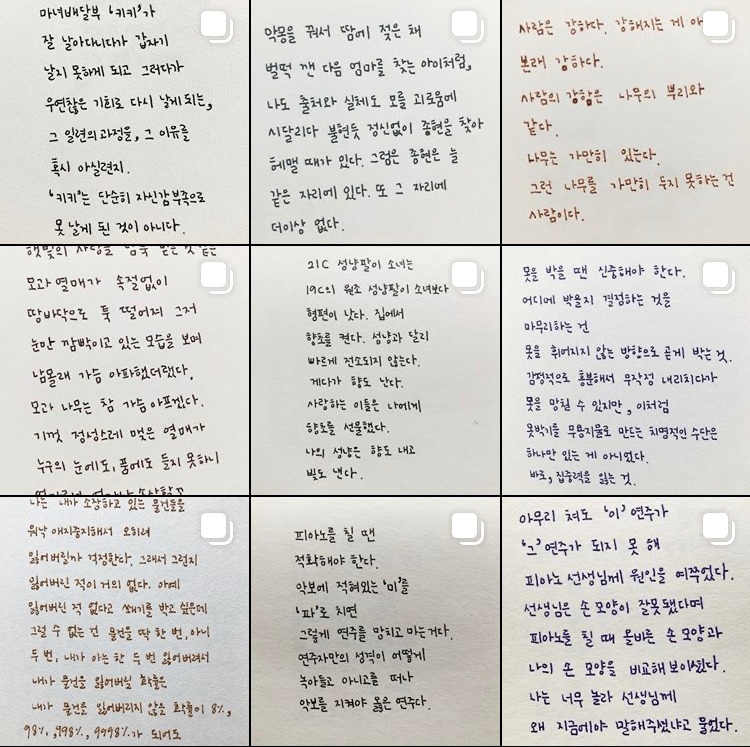 마녀배달부 '키키'가
잘 날아다니다가 갑자기
날지 못하게 되고 그러다가
우연찮은 기회로 다시 날게 되는,
그 일련의 과정을, 그 이유를
혹시 아실련지.
'키키'는 단순히 자신감 부족으로
못 날게 된 것이 아니다.
악몽을 꿔서 땀에 젖은 채
벌떡 깬 다음 엄마를 찾는 아이처럼,
나도 출처와 실체도 모를 괴로움에
시달리다 불현듯 정신없이 종현을 찾아
헤맬 때가 있다. 그럼은 종현은 늘
같은 자리에 있다. 또 그 자리에
더이상 없다.
사람은 강하다. 강해지는 게 아
본래 강하다.
사람의 강함은 나무의 뿌리와
같다.
나무는 가만히 있는다.
그런 나무를 가만히 두지 못하는 건
사람이다.
햇빛의 사랑을
모과 열매가 속절없이
땅바닥으로 툭 떨어져 그저
눈만 깜빡이고 있는 모습을 보며
남몰래 가슴 아파했더랬다.
모과 나무는 참 가슴 아프겠다.
기껏 정성스레 맺은 열매가
누구의 눈에도, 품에도 들지 못하니
21C 성냥팔이 소녀는
19C의 원소 성냥팔이 소녀보다
형편이 낫다. 집에서
향초를 켠다. 성냥과 달리
빠르게 전소되지 않는다.
게다가 향도 난다.
사랑하는 이들은 나에게
향초를 선물했다.
나의 성냥은 향도 내고
빛도 낸다.
못을 박을 땐 신중해야 한다.
어디에 박을지 결정하는 것을
마무리하는 건
못을 휘어지지 않는 방향으로 곧게 박는 것.
감정적으로 흥분해서 무작정 내리치다가
못을 망칠 수 있지만, 이처럼
못박기를 무용지물로 만드는 치명적인 수단은
하나만 있는 게 아니었다.
바로, 집중력을 잃는 것.
나는 내가 소장하고 있는 물건들을
워낙 애지중지해서 오히려
잃어버릴까 걱정한다. 그래서 그런지
잃어버린 적이 거의 없다. 아예
잃어버린 적 없다고 쐐기를 박고 싶은데
그럴 수 없는 건 물건을 딱 한 번, 아니
두 번, 내가 아는 한 두 번 잃어버려서
내가 물건을 잃어버릴 확률은
내가 물건을 잃어버리지 않을 확률이 8%,
98%, ,998%, 9998%가 되어도
피아노를 칠 땐
적확해야 한다.
악보에 적혀있는 '미'를
'파'로 치면
그렇게 연주를 망치고 마는거다.
연주자만의 성격이 어떻게
녹아들고 아니고를 떠나
악보를 지켜야 옳은 연주다.
아무리 쳐도 '이' 연주가
'그' 연주가 되지 못 해
피아노 선생님께 원인을 여쭈었다.
선생님은 손 모양이 잘못됐다며
피아노를 칠 때 올바른 손 모양과
나의 손 모양을 비교해 보이셨다.
나는 너무 놀라 선생님께
왜 지금에야 말해주셨냐고 물었다.